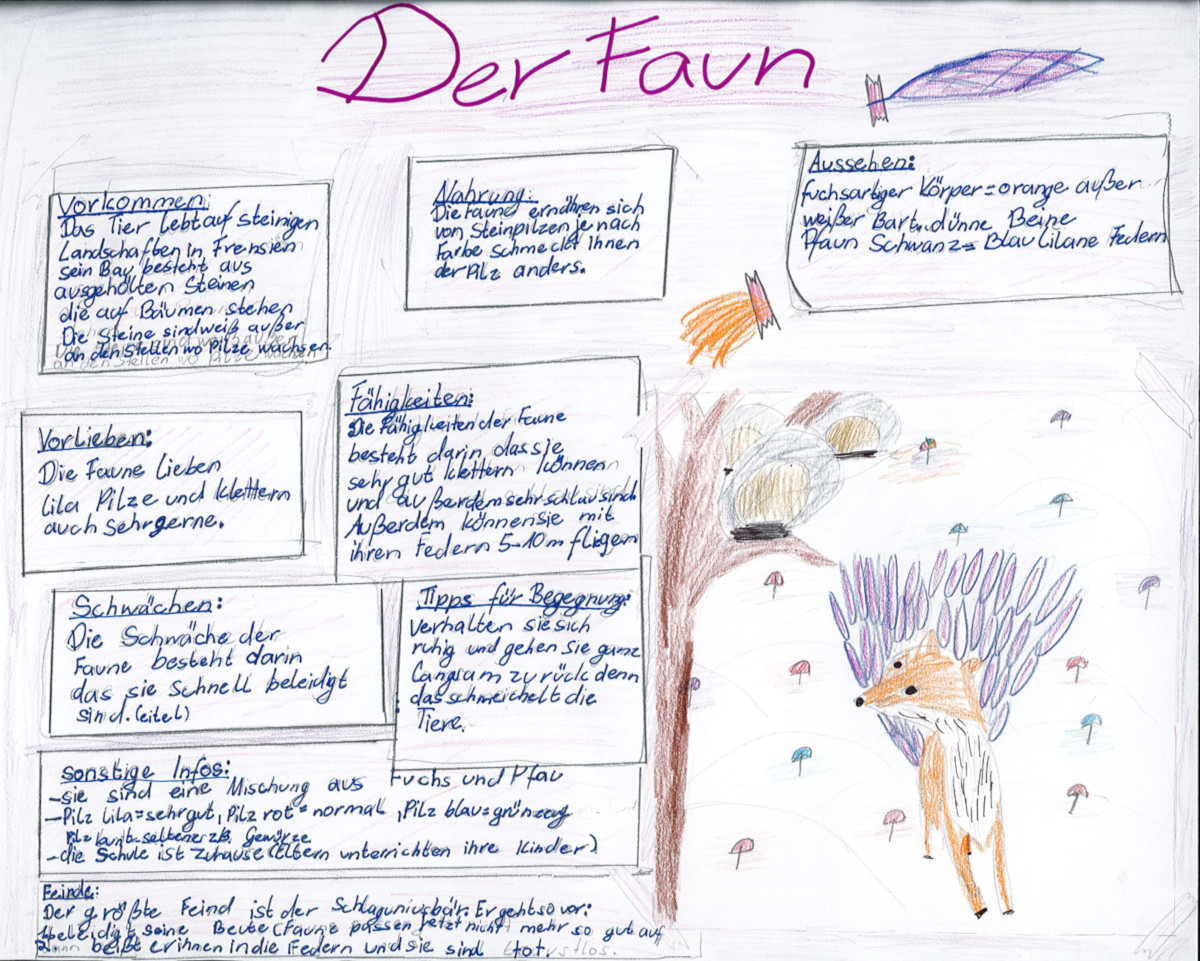 Der Faun
Vorkommen:
Das Tier lebt auf steinigen
Landschaften in Frensien
sein Bay besteht aus
ausgehölten Steinen
die auf Bäumen stehen
Die Steine sind weiß außer
an den Stellen wo Pilze wachsen.
Nahrung:
Die Faune ernähren sich
von Steinpilzen je nach
Farbe schmeckt ihnen
der Pilz anders.
Aussehen:
fuchsartiger Körper=orange außer
weißer Bart. dünne Beine
Pfaun Schwanz= Blau Lilane Federn
Vorlieben:
Die Faune Lieben
lila Pilze und klettern
auch sehr gerne.
Fähigkeiten:
Die Fähigkeiten der Faune
besteht darin, dass sie
sehr gut klettern können
und außerdem sehr schlau sind
Außerdem können sie mit
ihren Federn 5-10 m fliegen
Schwächen:
Die Schwäche der
Faune besteht darin
das sie schnell beleidigt
sind. (eitel)
Tipps für Begegnung:
Verhalten sie sich
ruhig und gehen sie ganz
Langsam zurück denn
das schmeichelt die
Tiere.
sonstige Infos:
-sie sind eine Mischung aus Fuchs und Pfau
-Pilz Lila=sehr gut, Pilz rot=normal, Pilz blau=grünzeug
Pilz bunt=seltener zB. Gewürze
-die Schule ist Zuhause (Eltern unterrichten ihre Kinder)
Feinde:
Der größte Feind ist der Schlaguniusbär. Er geht so vor:
beleidigt seine Beute (Faune passen jetzt nicht mehr so gut auf
Dann beißt er ihnen in die Federn und sie sind tot.